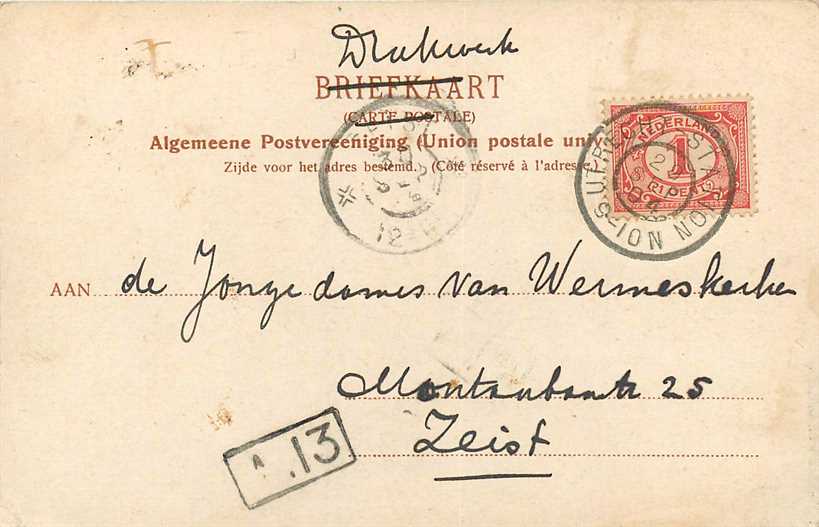 Drukwerk
BRIEFKAART
(CARTE POSTALE)
Algemeene Postvereeniging (Union postale uni
Zijde voor het adres bestemd. (Côté réservé à l'adresse.
NEDERLAND
1
UTRECHT-STATION
AAN de Jonge dames van Wermeskerken
Montaubanstr 25
Zeist
.13